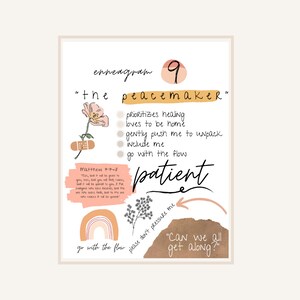 enneagram 9
"the peacemaker"
prioritizes healing
loves to be home
gently push me to unpack
include me
go with the flow
patient
please don't pressure me
go with the flow
"Can we all
get along?"